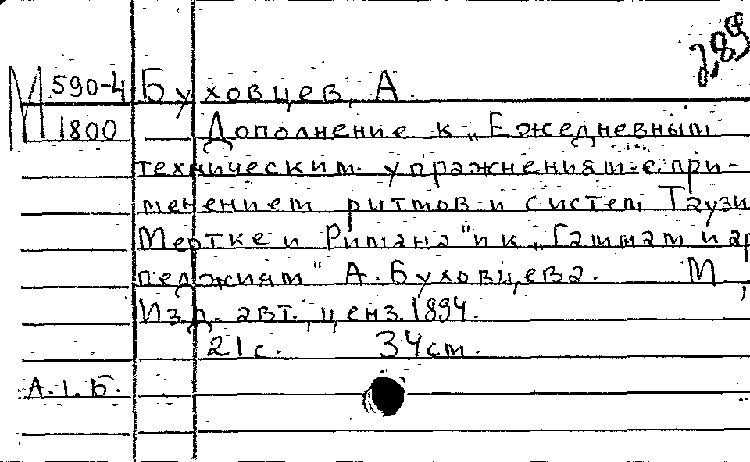 289
М 590-4 Буховцев, А.
1800 Дополнение к „Ежедневным
техническим упражнениям с при-
менением ритмов и систем Таузи
Мертке и Римана" и к „Гаммам и ар
педжиям" А. Буховцева. М,
Изд. авт., ценз. 1894.
21 с. 34 см.
А.1.Б.